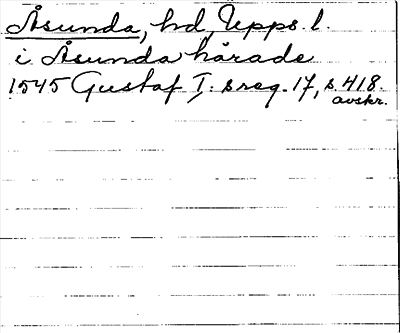 Åsunda, hd, Upps. l.
i Åsunda hårade
1545 Gustaf I:s reg. 17, s. 418.
avskr.